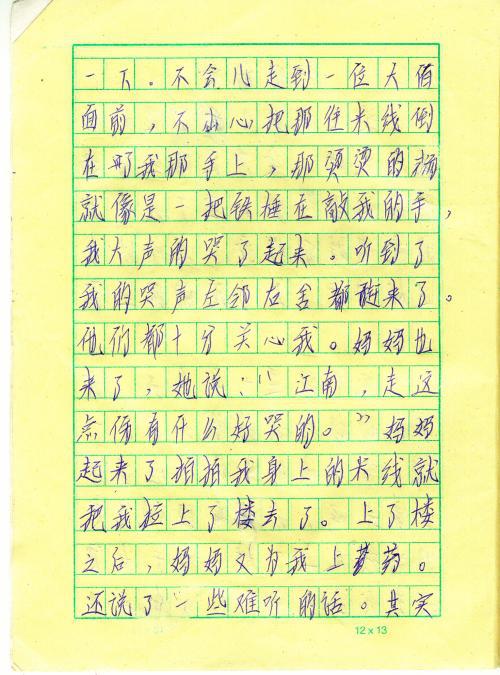 一下。不会儿走到一位大值
面前，不小心把那住米线倒
在了我那手上，那烫烫的汤
就像是一把铁捶在敲我的手，
我大声的哭了起来。听到了
我的哭声左邻右舍都赶来了。
他们都十分关心我。妈妈也
来了，她说：“江南，走这
点伤有什么好哭的。”妈妈
起来了拍拍我身上的米线就
把我拉上了楼去了。上了楼
之后，妈妈又为我上药。
还说了一些难听的话。其实
12×13